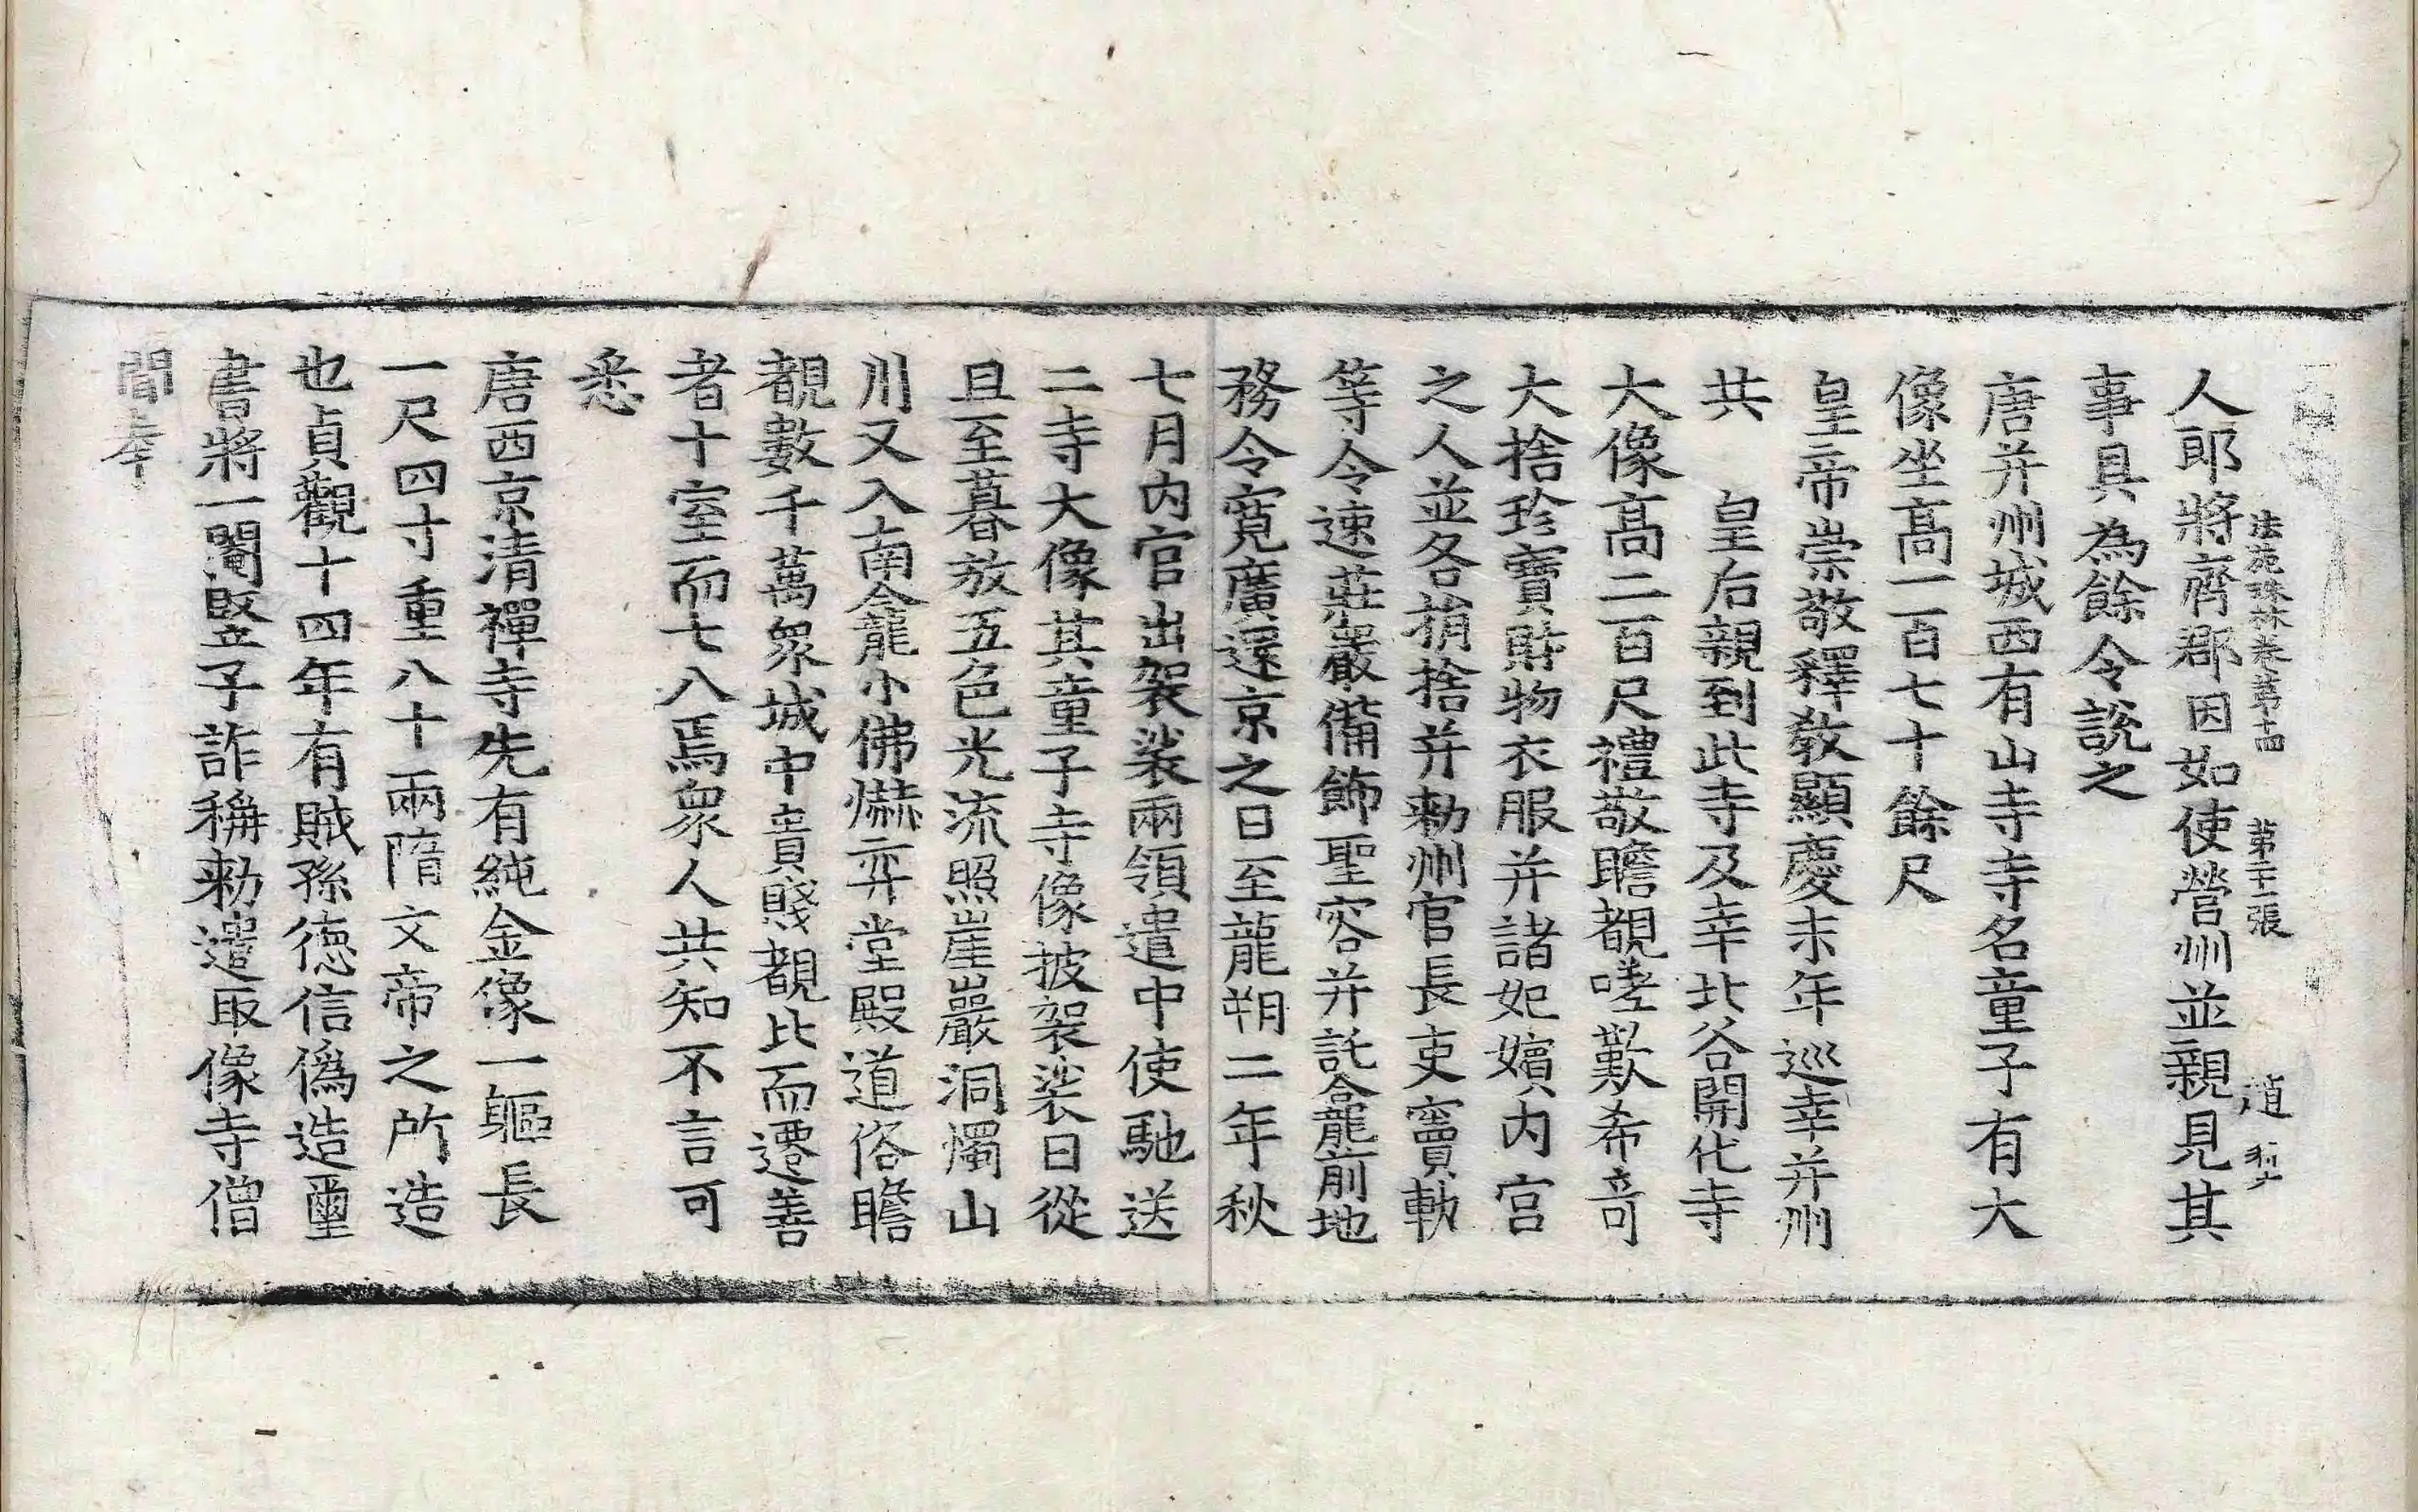 法苑珠林卷第十四 第二十二張 趙
人郎將齊郡因如使營州並親見其
事具為餘令說之
唐并州城西有山寺寺名童子有大
像坐高一百七十餘尺
皇帝崇敬釋教顯慶末年巡幸并州
共 皇后親到此寺及幸北谷開化寺
大像高二百尺禮敬瞻覩嗟歎希奇
大捨珍寶財物衣服并諸妃嬪內宮
之人並各捐捨并勅州官長吏竇軌
等令速莊嚴備飾聖容并託龕前地
務令寬廣還京之日至龍朔二年秋
七月內官出袈裟兩領遣中使馳送
二寺大像其童子寺像披袈裟日從
旦至暮放五色光流照崖巖洞燭山
川又入南龕小佛爀弈堂殿道俗瞻
覩數千萬眾城中貴賤覩比而遷善
者十室而七八焉眾人共知不言可
悉
唐西京清禪寺先有純金像一軀長
一尺四寸重八十兩隋文帝之所造
也貞觀十四年有賊孫德信偽造璽
書將一閹豎子詐稱勅遣取像寺僧
聞奉